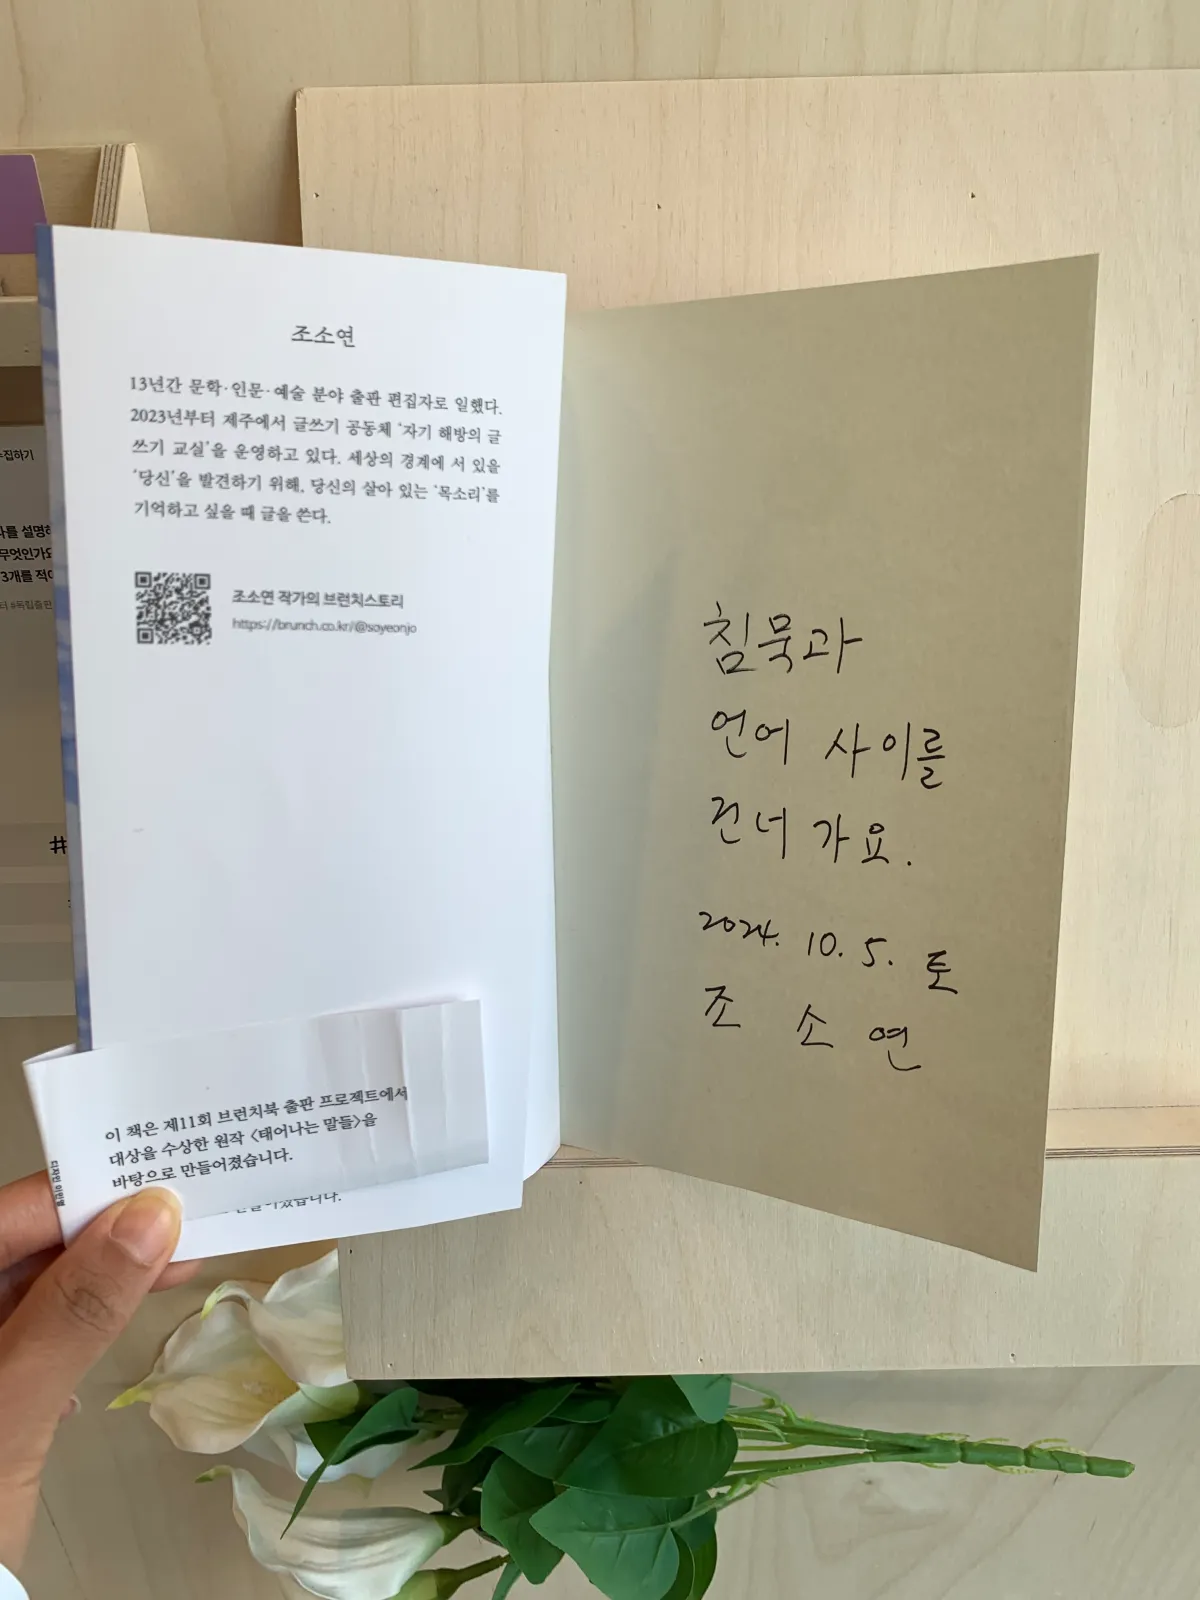 조소연
13년간 문학·인문·예술 분야 출판 편집자로 일했다.
2023년부터 제주에서 글쓰기 공동체 ‘자기 해방의 글
쓰기 교실’을 운영하고 있다. 세상의 경계에 서 있을
‘당신’을 발견하기 위해, 당신의 살아 있는 ‘목소리’를
기억하고 싶을 때 글을 쓴다.
조소연 작가의 브런치스토리
https://brunch.co.kr/@soyeonjo
이 책은 제11회 브런치북 출판 프로젝트에서
대상을 수상한 원작 <태어나는 말들>을
바탕으로 만들어졌습니다.
침묵과
언어 사이를
건너 가요.
2024. 10. 5. 토
조 소 연
집하기
를 설명하
무엇인가요
3개를 적어
#독립출판
#